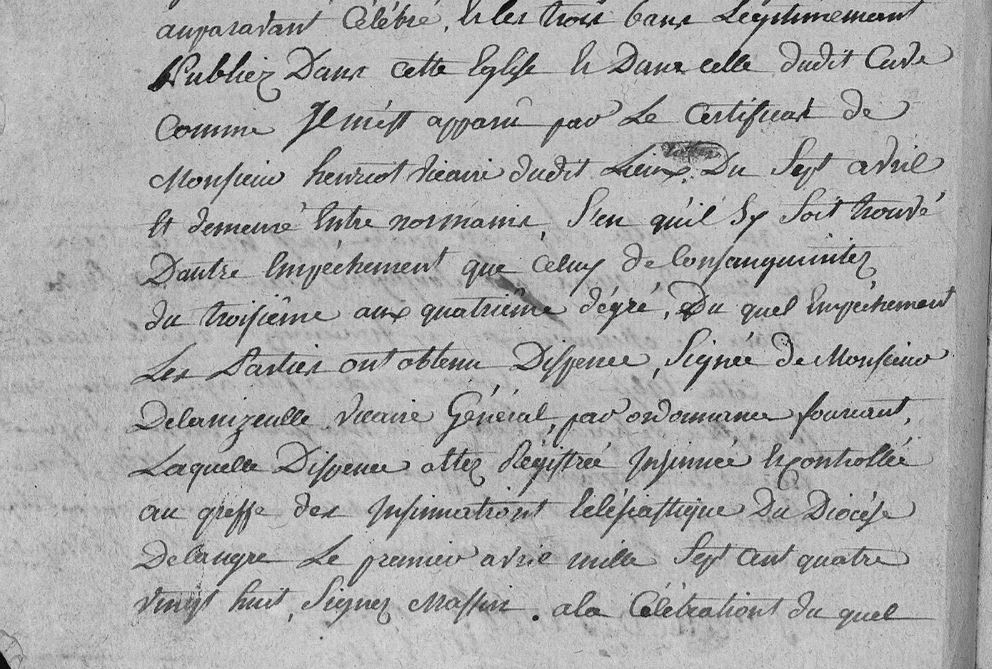 auparavant Célébré, et les trois bans Légitimement
Publiez Dans cette Eglise et Dans celle dudit Cuve
Comme Il m'est apparu par Le Certificat de
Monsieur henriot vicaire dudit Lieux. Du Sept avril
Et demeuré Entre nos mains, S'en qu'il Sy Soit trouvé
Dautre Empéchement que Celuy de Consanguinitez
du troisiême aux quatriême dégré, Du quel Empêchement
Les Parties ont obtenu Dispence, Signée de Monsieur
Delanizeulle vicaire Général, par ordonnance
Laquelle Dispence attez Régistrée Insinuée et controllée
au greffe des Insinuationt Eclésiastique Du Diocése
Delangre Le premier avril mille Sept Cent quatre
vingt huit, Signez Massin. ala Célébrationt du quel